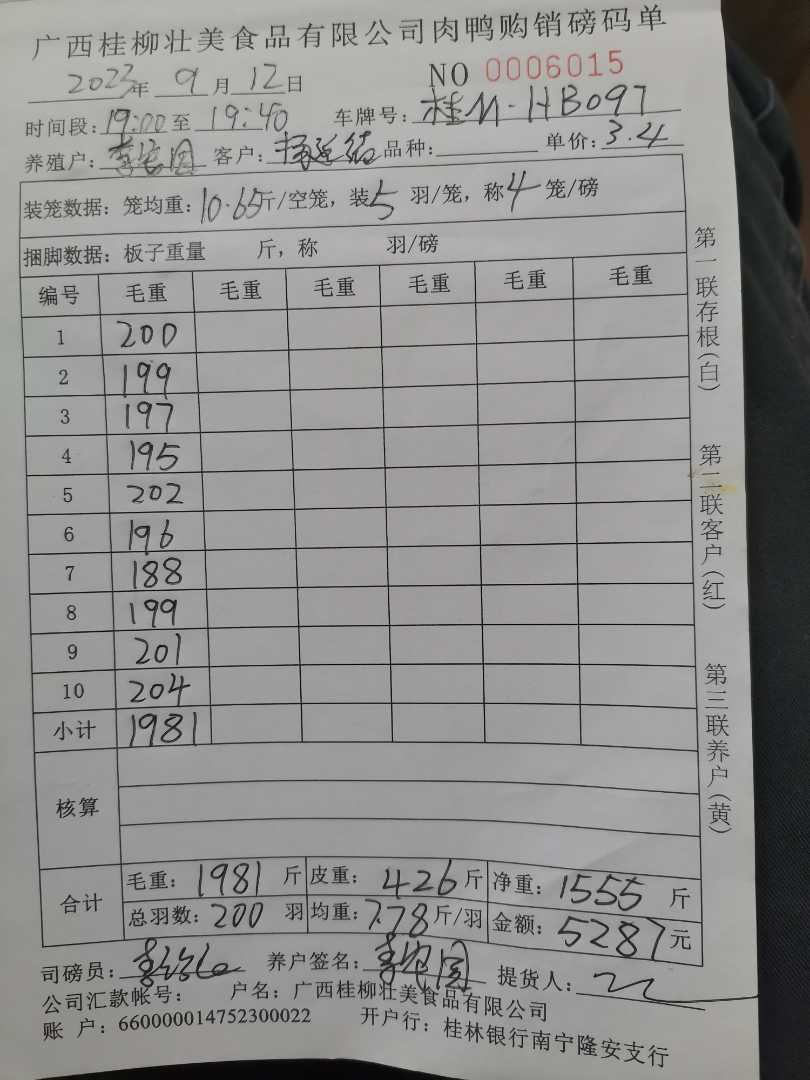 广西桂柳壮美食品有限公司肉鸭购销磅码单
2023年 9月12日 NO 0006015
时间段:19:00至 19:40 车牌号:桂M·HB097
养殖户: 客户: 品种: 单价:3.4
装笼数据:笼均重:10.65斤/空笼,装5 羽/笼,称4笼/磅
捆脚数据:板子重量 斤,称 羽/磅
编号 毛重 毛重 毛重 毛重 毛重 毛重
1 200
2 199
3 197
4 195
5 202
6 196
7 188
8 199
9 201
10 204
小计 1981
核算
合计 毛重:1981斤 皮重:426斤 净重:1555斤
总羽数:200羽 均重:7.78斤/羽 金额:5287元
司磅员: 养户签名: 提货人:
公司汇款帐号: 户名:广西桂柳壮美食品有限公司
账 户:660000014752300022 开户行:桂林银行南宁隆安支行
第一联存根(白) 第二联客户(红) 第三联养户(黄)